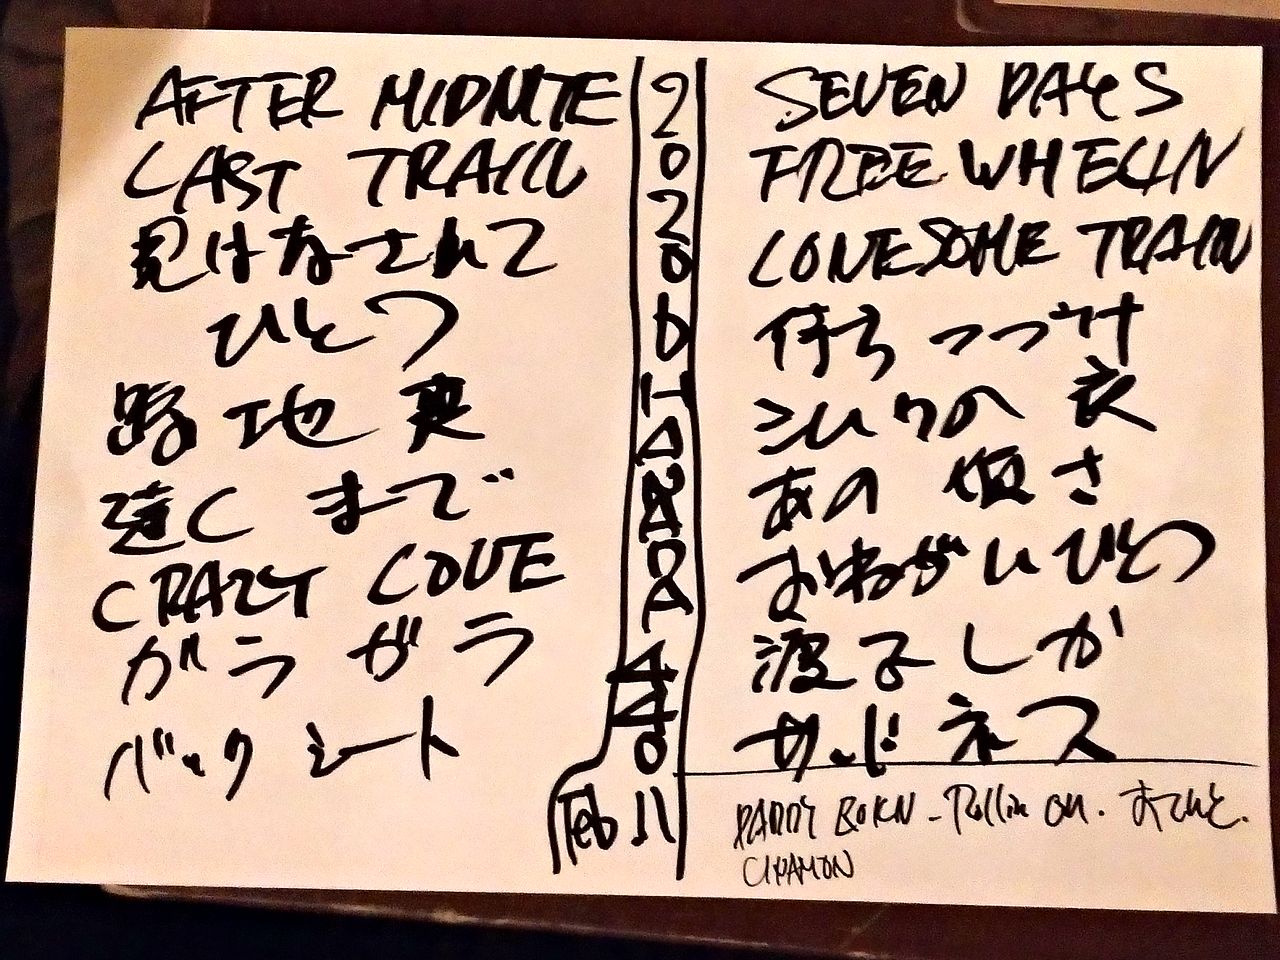 AFTER MIDNITE
LAST TRAIN
見はなされて
ひとつ
路地裏
遠くまで
CRAZY LOVE
ガラガラ
バックシート
2020
Feb 11
SEVEN DAYS
FREE WHEELIN
LONESOME TRAIN
待ちつづけ
シルクの衣
あの
おねがいひとつ
渡子しか
サッドネス
DADDY BORN - Rollin on.
CINAMON